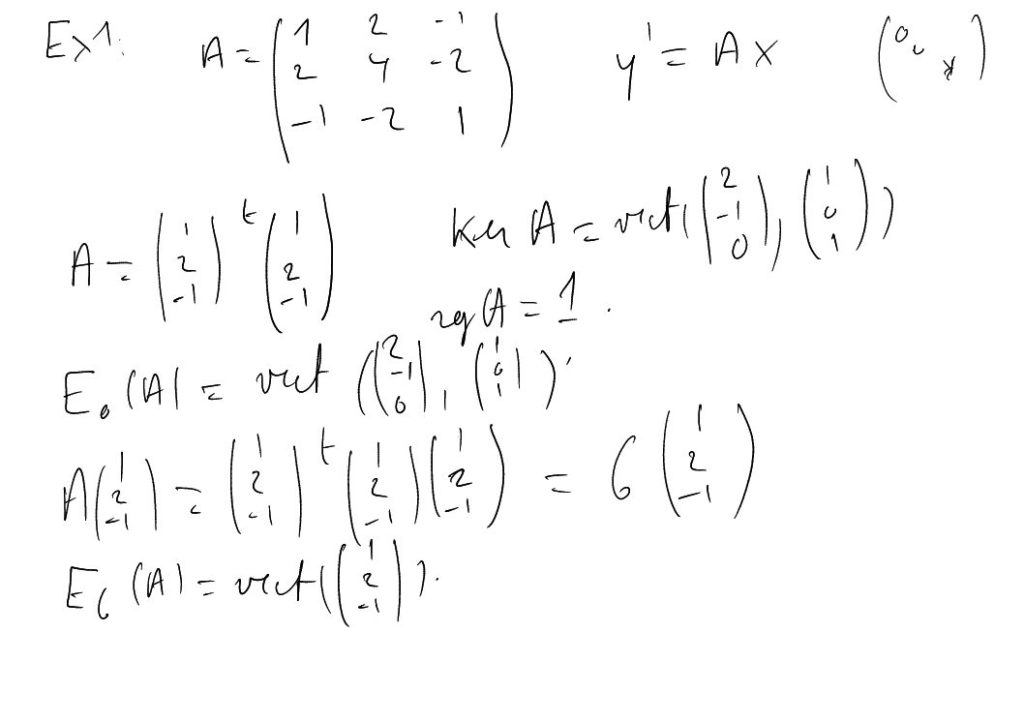 Ex1: A = ( 1 2 -1 ; 2 4 -2 ; -1 -2 1 ) y' = A x ( 0 0 * )
A = ( 1 2 -1 ) t ( 1 2 -1 ) Ker A = vect( ( 2 -1 0 ), ( 1 0 1 ) )
rg A = 1 .
E₀ (A) = vect ( ( 2 -1 0 ), ( 1 0 1 ) )
A ( 1 2 -1 ) = ( 1 2 -1 ) t ( 1 2 -1 ) ( 1 2 -1 ) = 6 ( 1 2 -1 )
E₆ (A) = vect( ( 1 2 -1 ) ).